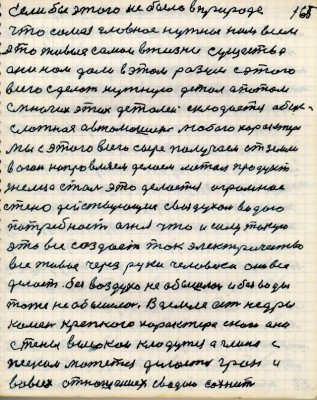 если бы этого не было в природе 165
что самая главное нужная нам всем
это живые самои в жизни существа
ани нам дали в этом разум с этого
всего сделат нужную детал а потом
с многих этих деталей складается
сложная автомошина любого характера
мы с этого всего сыре получаем от земли
в огон направляем делаем метал продукт
железа стал это делается огромное
действующие с воздухом водою
потребност огня что и силу такую
это все создаёт ток электричество
все живые через руки человека он все
делает без воздуха не обошлос и без воды
тоже не обошлос. В земле ест недра
камен крепкого характера с него ана
стена высокая кладутся а глина с
песком можется делаются гран и
во всех отношениях с водою сохнит